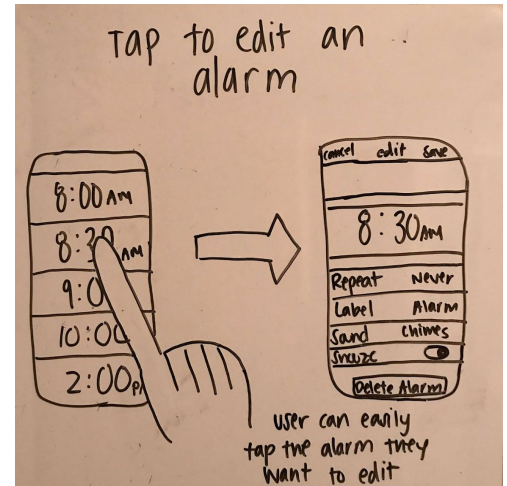 Tap to edit an
alarm
8:00 AM
8:30 AM
9:0
10:00
2:00 P
cancel edit Save
8:30 AM
Repeat Never
Label Alarm
Sound Chimes
Snooze
Delete Alarm
user can easily
tap the alarm they
want to edit